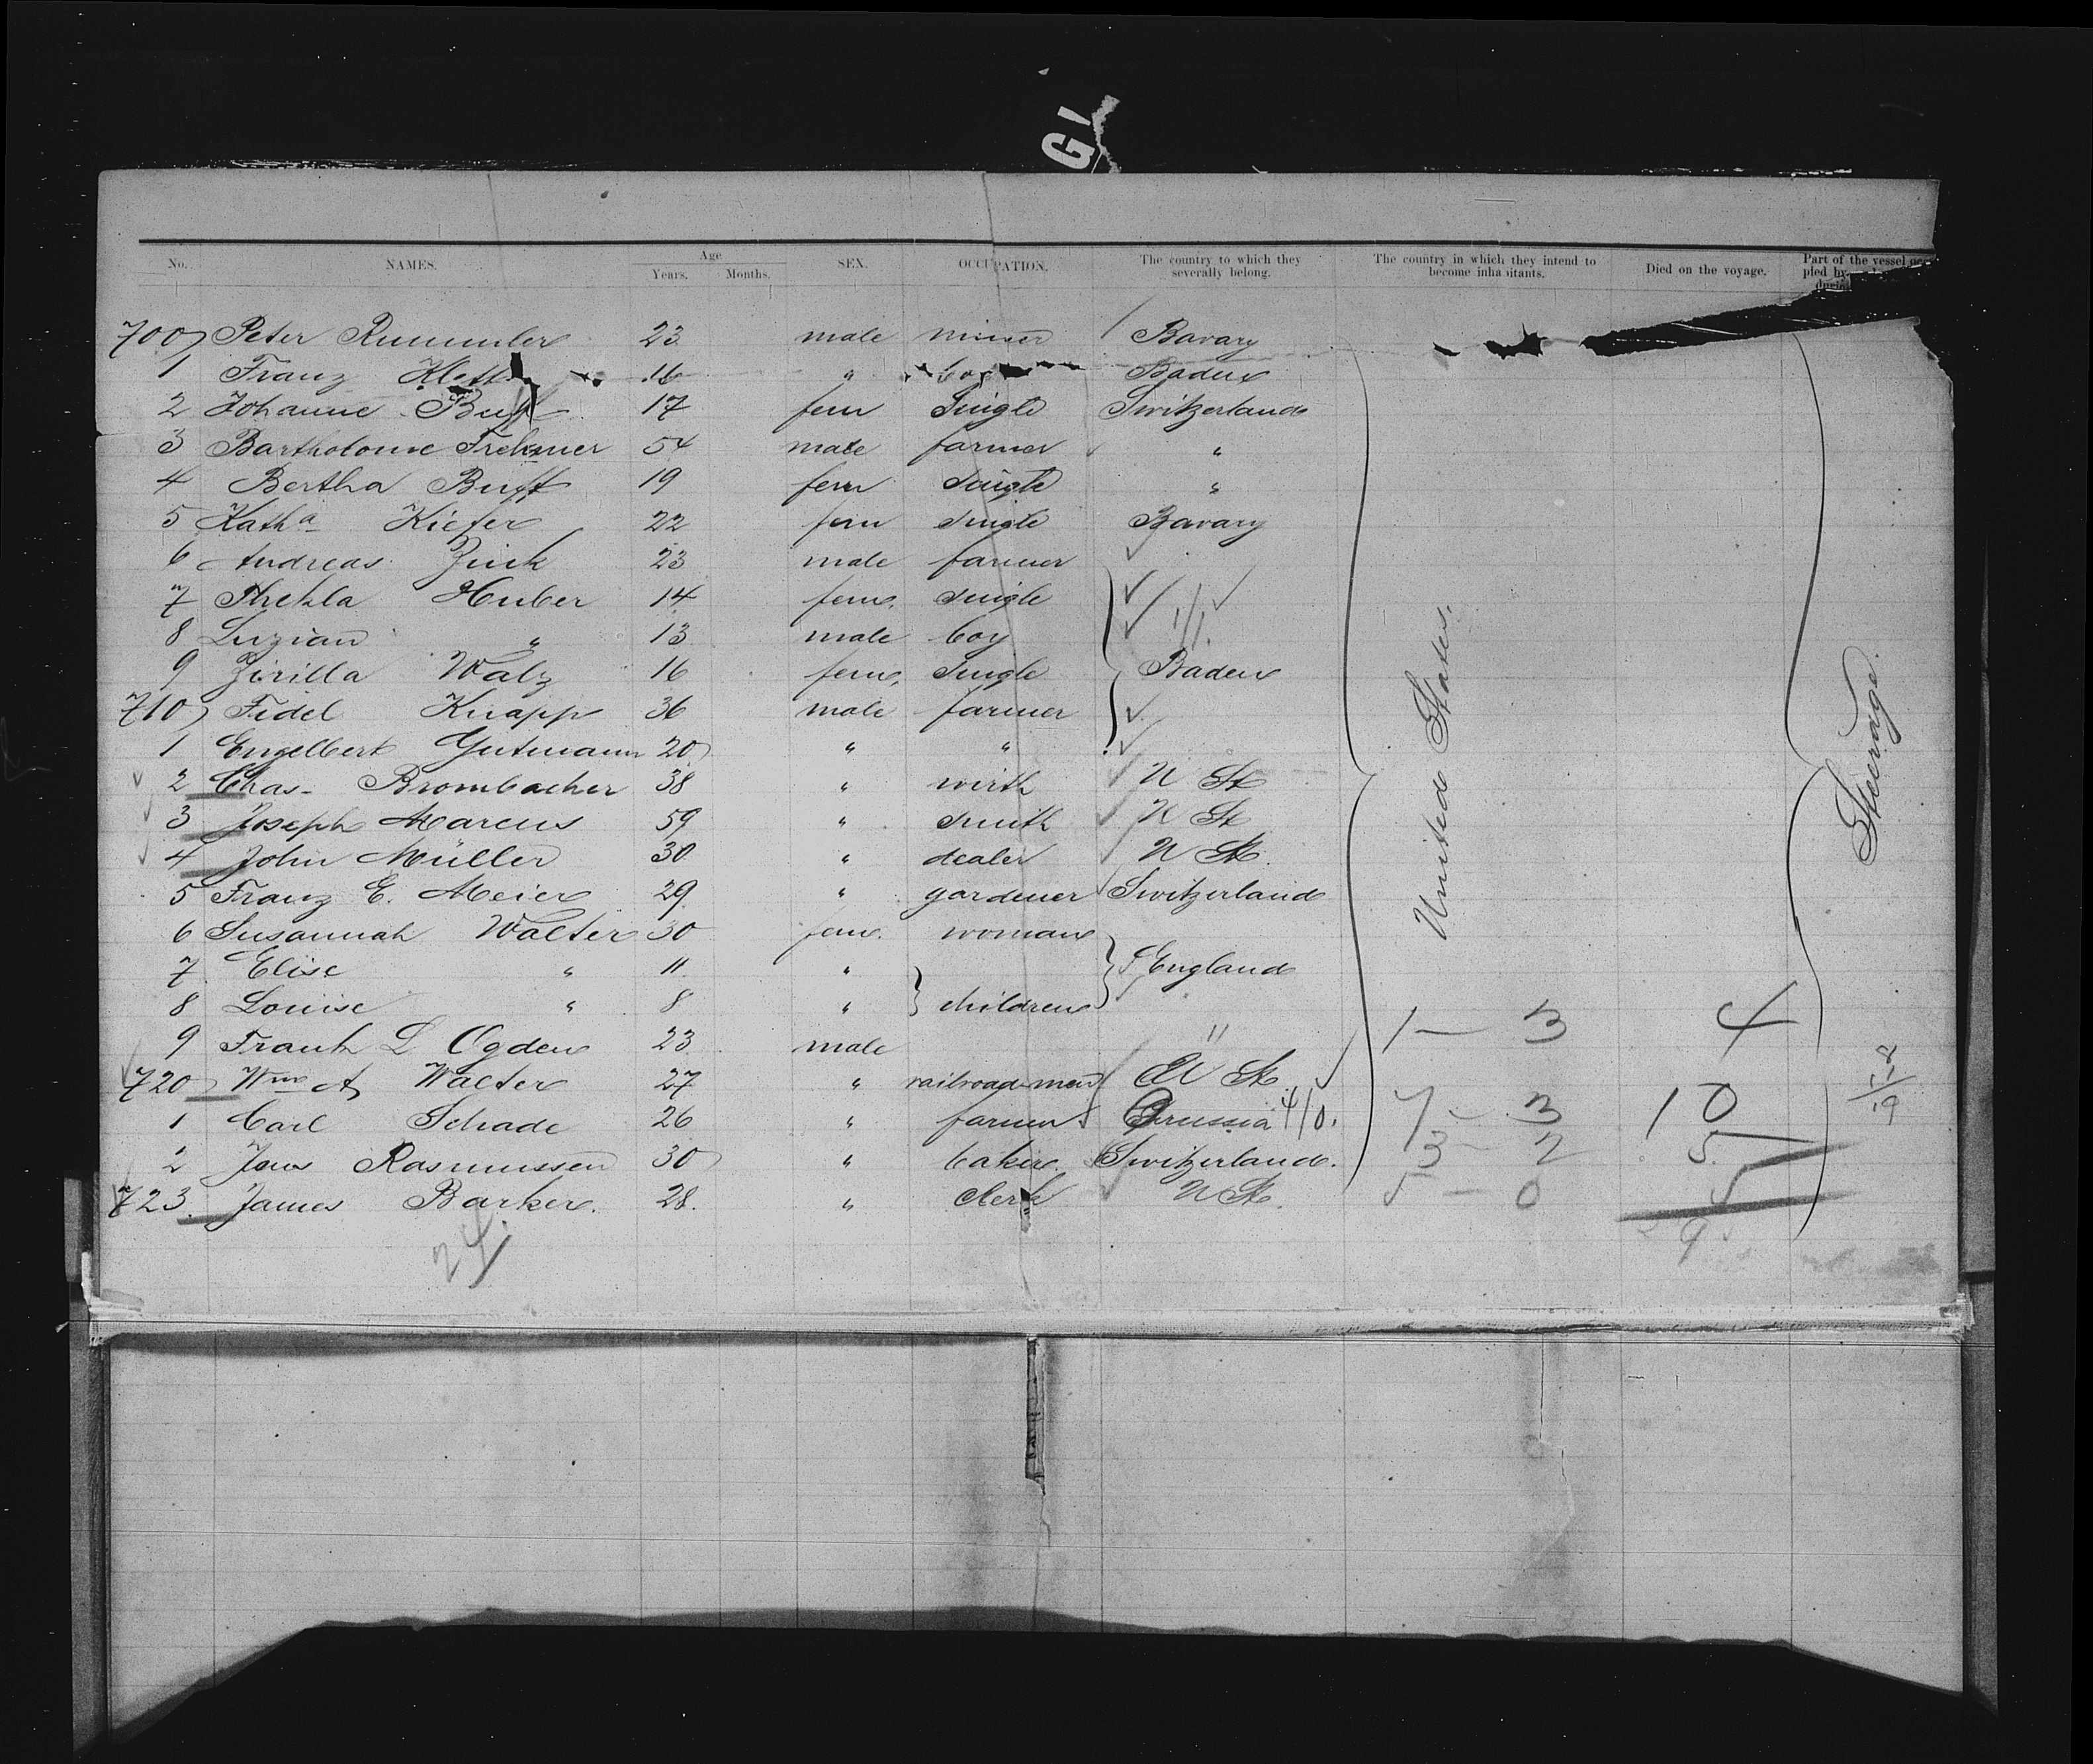 G
No. NAMES. Age Years. Months. SEX. OCCUPATION. The country to which they severally belong. The country in which they intend to become inhabitants. Died on the voyage. Part of the vessel pled by
700 Peter Rummler 23 male miner Bavary
1 Franz 16 " boy Baden
2 Johanne Buff 17 fem Single Switzerland
3 Bartholome 54 male farmer "
4 Bertha Buff 19 fem Single "
5 Katha Kiefer 22 fem Single Bavary
6 Andreas Zink 23 male farmer
7 Thekla Huber 14 fem. Single
8 Luzian " 13 male boy
9 Zirilla Walz 16 fem. Single Baden
710 Fidel Knapp 36 male farmer
1 Engelbert Gutmann 20 " "
2 Chas. Brombacher 38 " wirth U St
3 Joseph Marcus 59 " smith U St
4 John Müller 30 " dealer U St.
5 Franz E. Meier 29 " gardener Switzerland
6 Susannah Walter 30 fem. woman
7 Elise " 11 " England
8 Louise " 8 " children
9 Frank L Ogden 23 male "
720 Wm A Walter 27 " railroad-man U St.
1 Carl Schade 26 " farmer Prussia 4/0.
2 Jens Rasmussen 30 " baker Switzerland.
723. James Barker. 28. " clerk U St.
United States.
Steerage.
1 — 3 4
7 - 3 10
3 - 2 5
5 - 0 5
24.